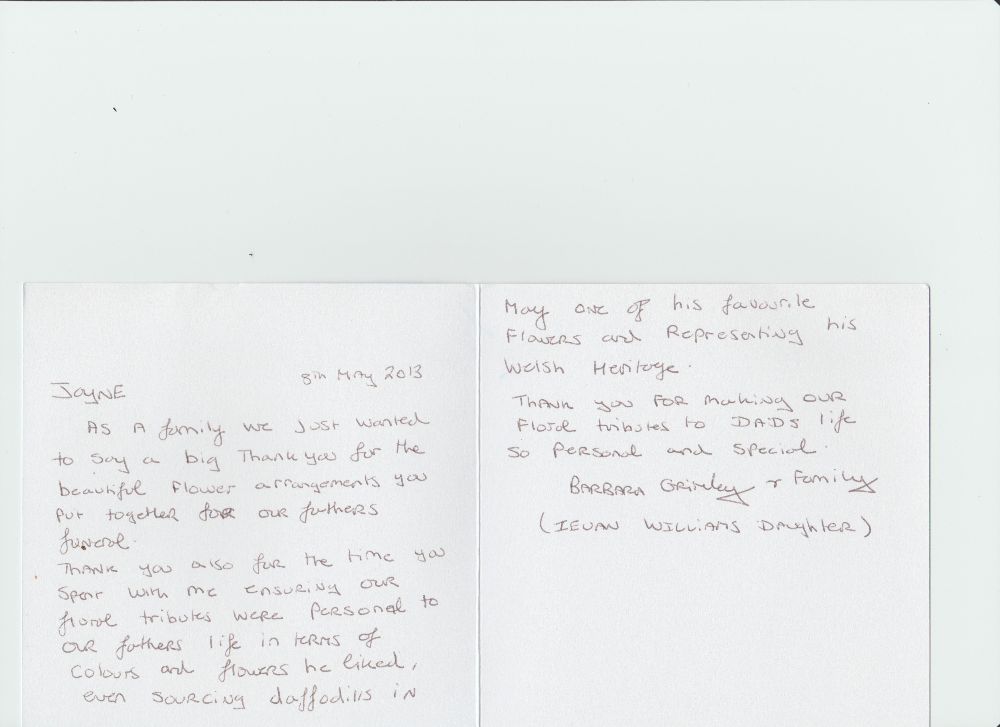 8th May 2013
Jayne
As a family we just wanted
to say a big Thankyou for the
beautiful flower arrangements you
put together for our fathers
funeral.
Thank you also for the time you
spent with me ensuring our
floral tributes were personal to
our fathers life in terms of
colours and flowers he liked,
even sourcing daffodills in
May one of his favourite
flowers and Representing his
Welsh Heritage.
Thank you for making our
floral tributes to DADS life
so personal and special.
Barbara Grimley + Family
(IEUAN WILLIAMS Daughter)